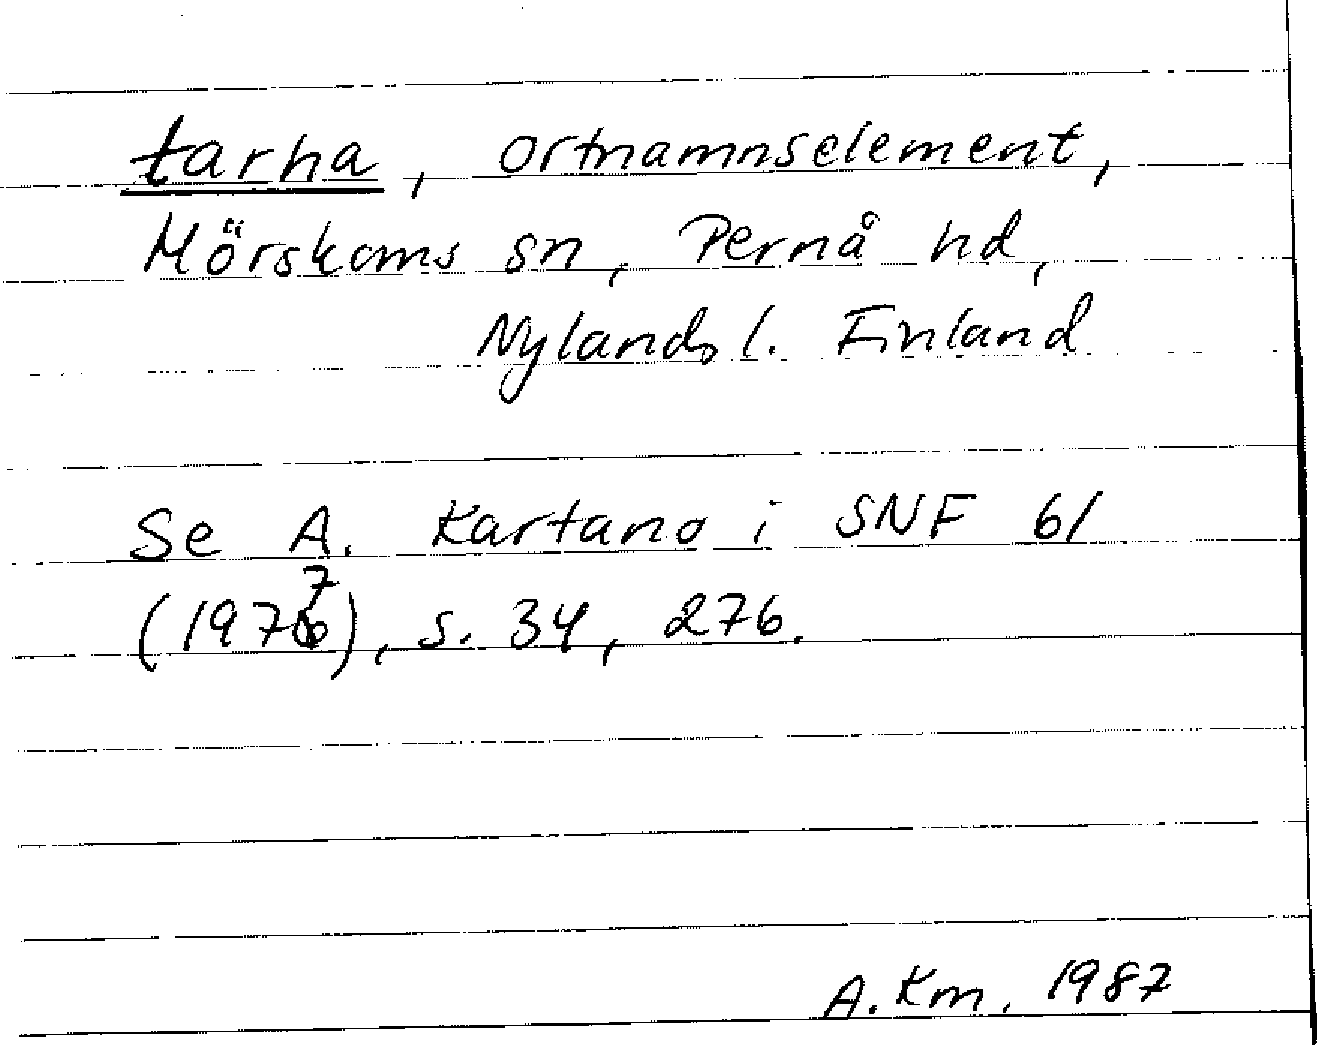 tarha, ortnamnselement,
Mörskoms sn, Pernå hd,
Nylands l. Finland
Se A. Kartano i SNF 61
(1977), s. 34, 276.
A. Km. 1987